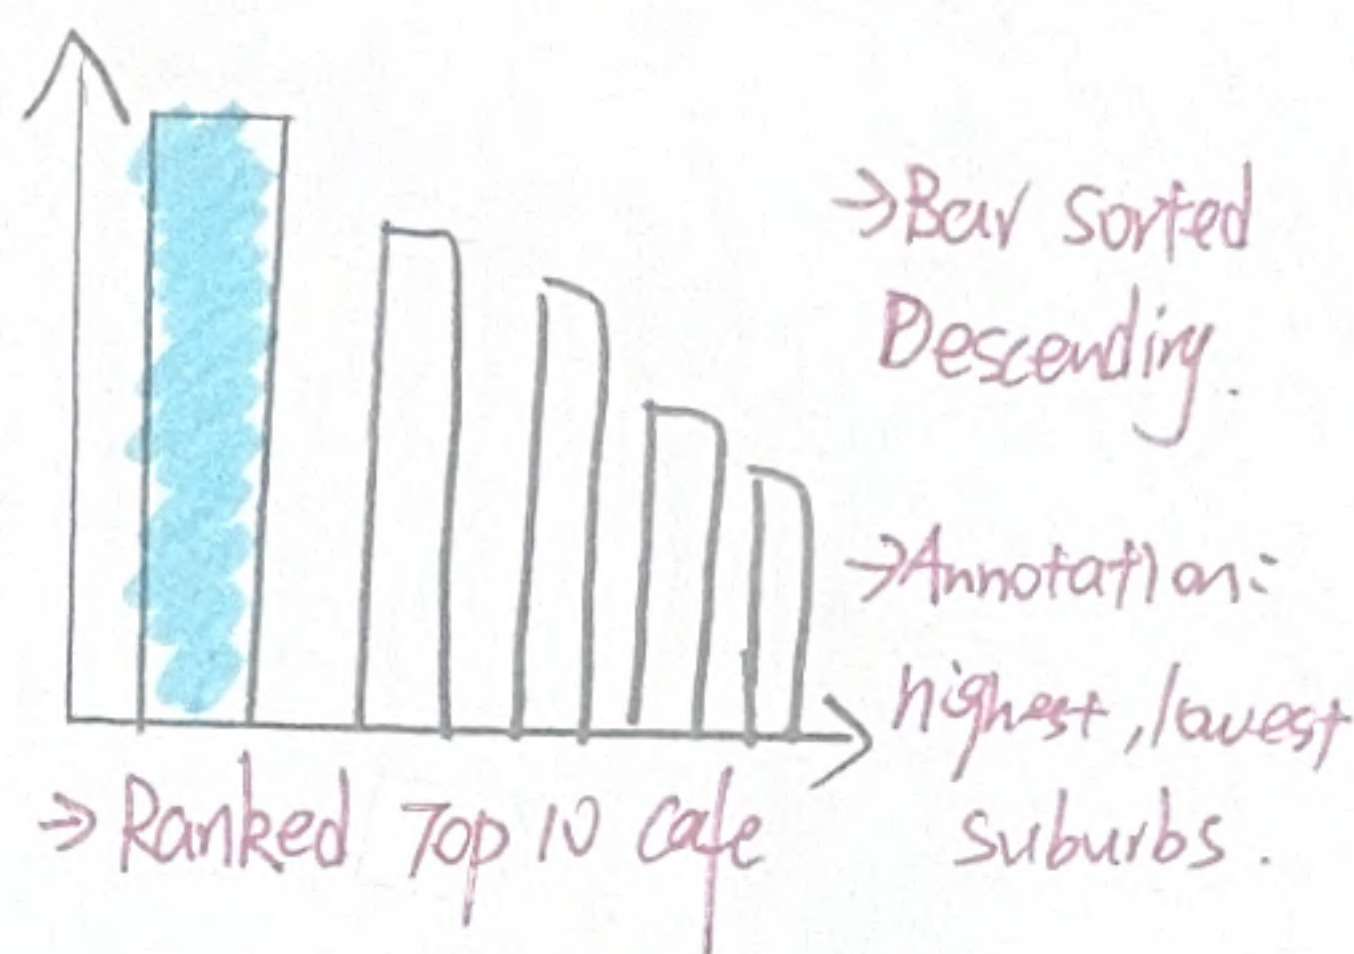 →Bar sorted
Descending.
→Annotation:
highest, lowest
suburbs.
→Ranked Top 10 cafe